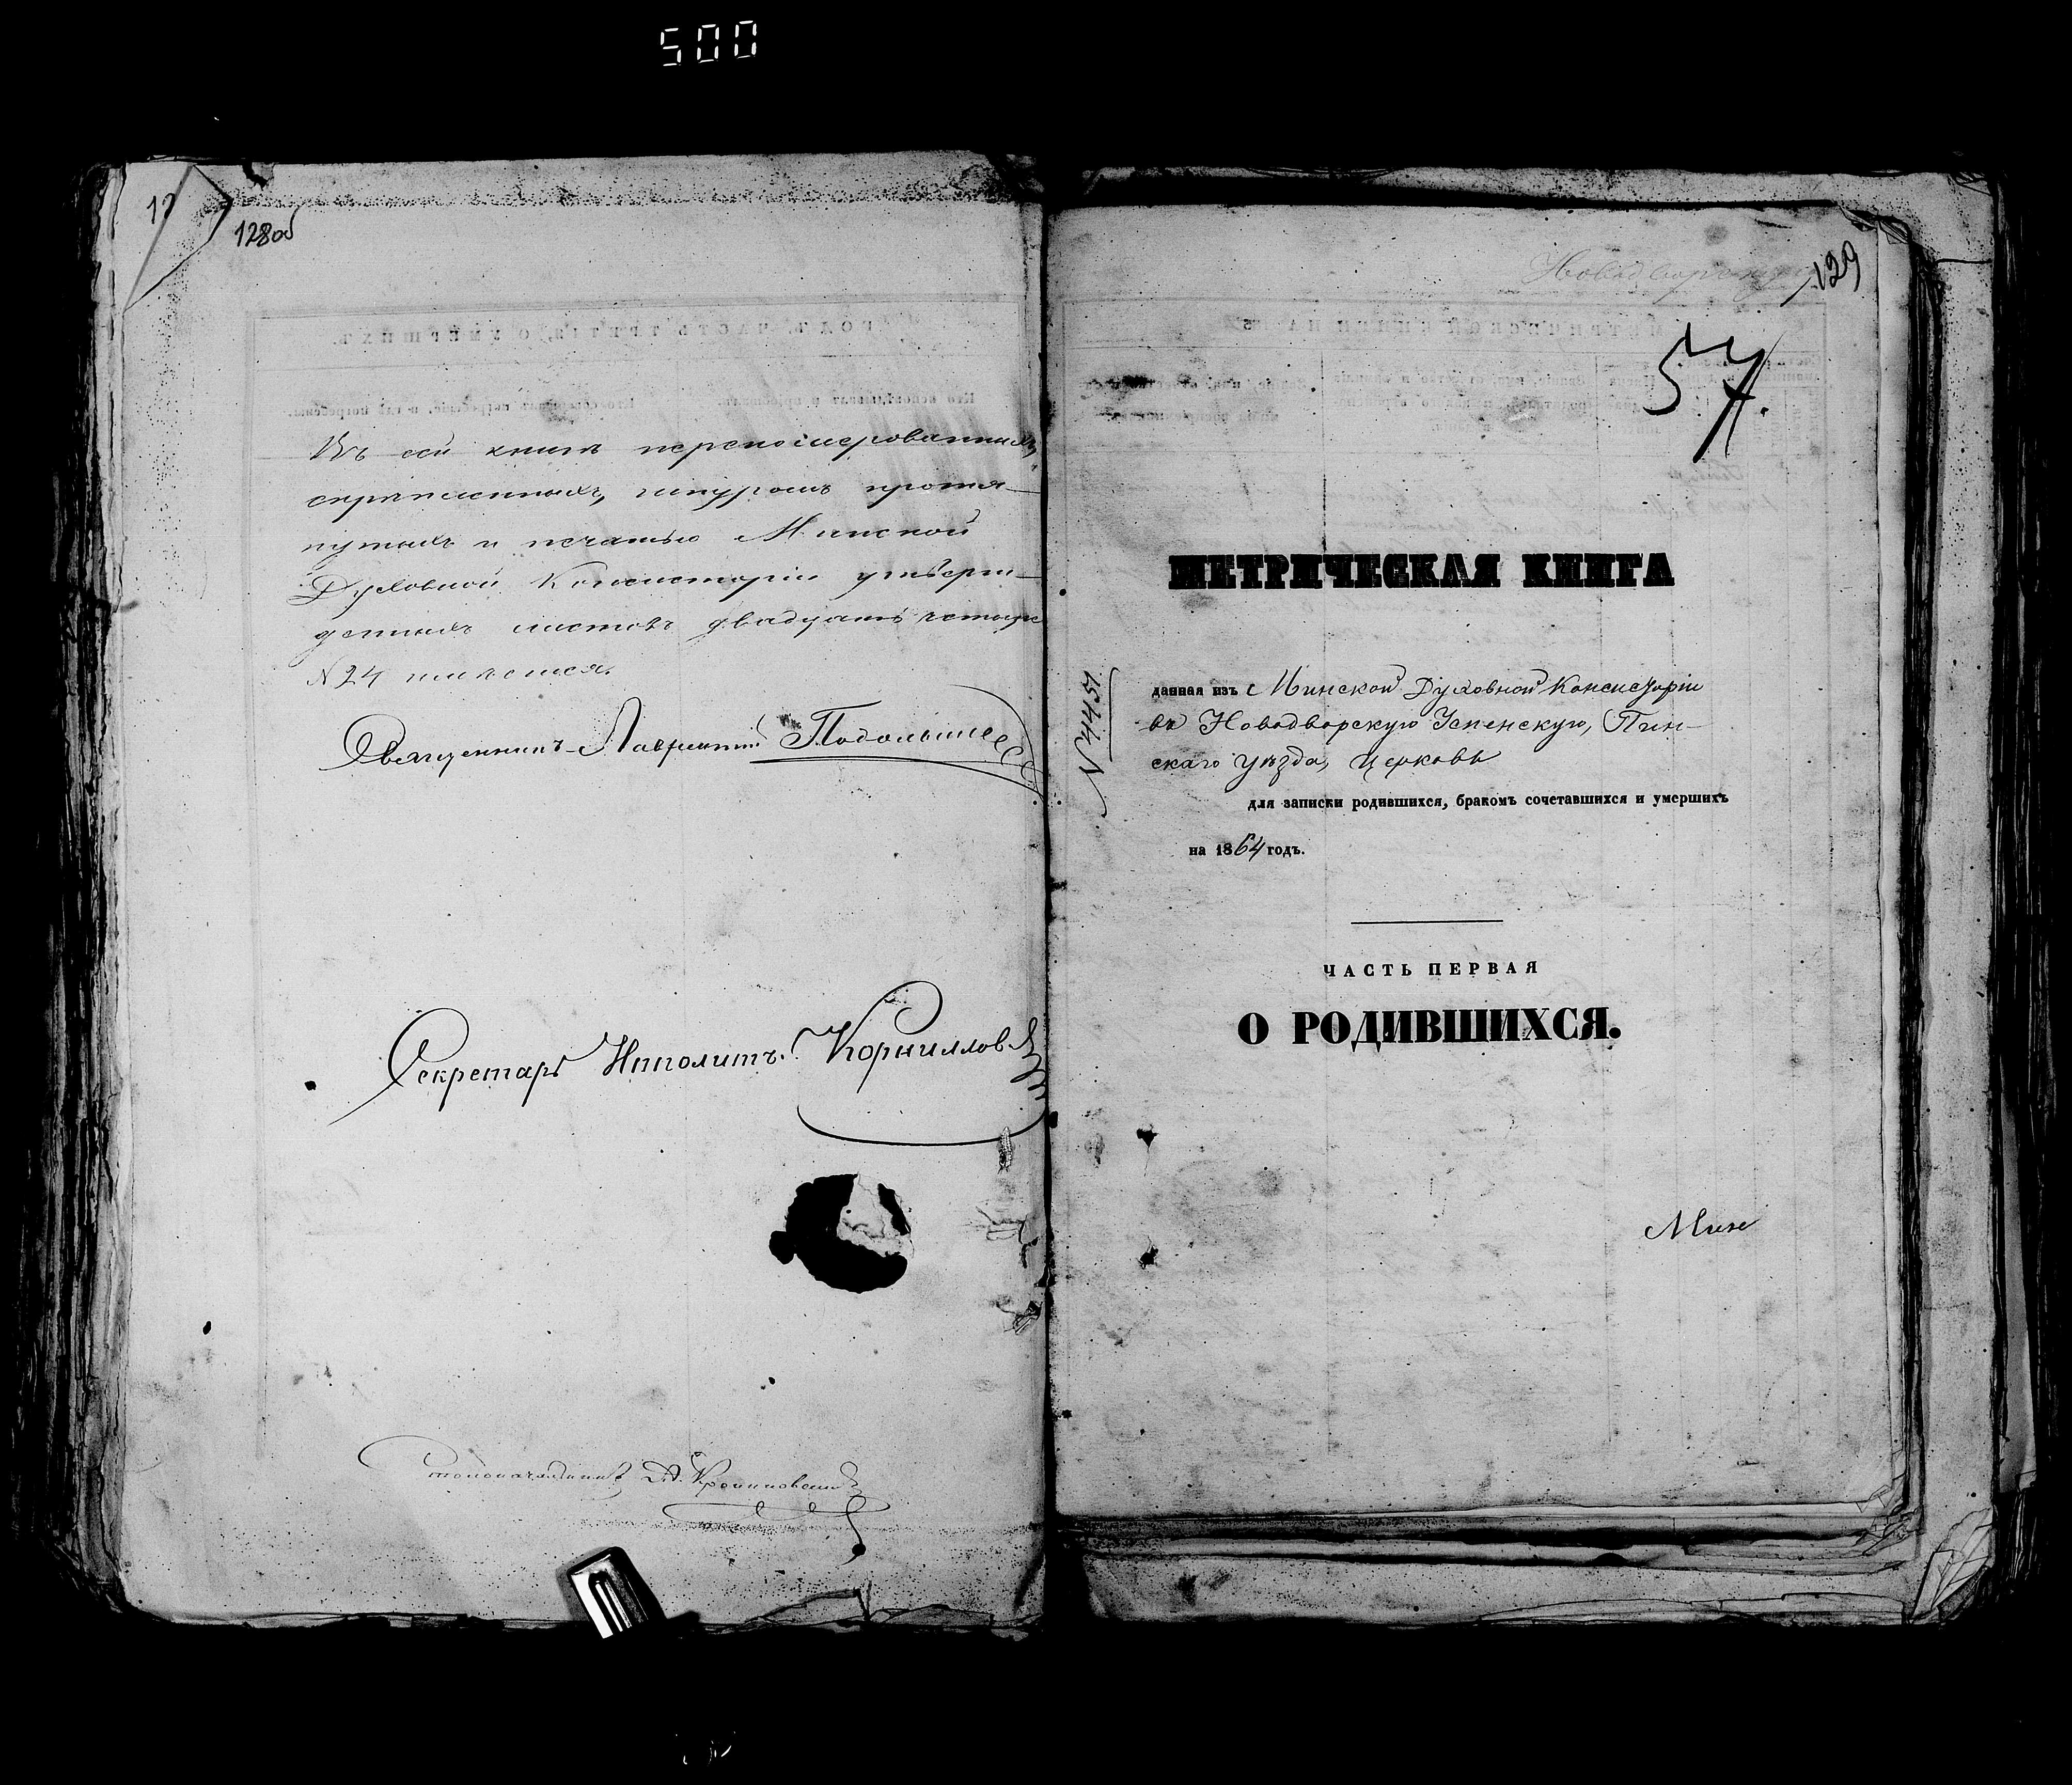 500
12
128об
Въ сей книгѣ перенумерованныхъ,
скрѣпленныхъ, шнуромъ протя-
нутыхъ и печатью Минской
Духовной Консисторіи утверж-
денныхъ листовъ двадцать четыре
№ 24 имѣется.
Священникъ Лаврентій
Секретарь Ипполитъ Корниловъ
Столоначальникъ А.
129
57.
МЕТРИЧЕСКАЯ КНИГА
№ 4451
данная изъ Минской Духовной Консисторіи
въ Новодворскую Успенскую, Пин-
скаго уѣзда, Церковь
для записки родившихся, бракомъ сочетавшихся и умершихъ
на 1864 годъ.
ЧАСТЬ ПЕРВАЯ
О РОДИВШИХСЯ.
Мин